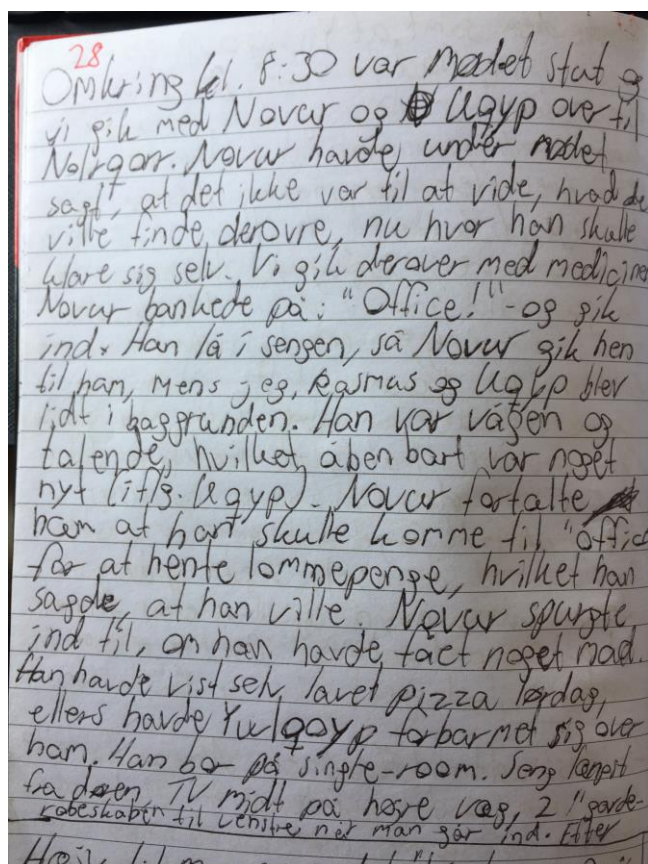 28
Omkring kl. 8:30 var mødet slut og
vi gik med Novur og Ugyp over til
Nolrgorr. Novur havde under mødet
sagt, at det ikke var til at vide, hvad de
ville finde derovre, nu hvor han skulle
klare sig selv. Vi gik derover med medicinen
Novur bankede på: "Office!" - og gik
ind. Han lå i sengen, så Novur gik hen
til ham, mens jeg, Rasmus og Ugyp blev
lidt i baggrunden. Han var vågen og
talende, hvilket åbenbart var noget
nyt (iflg. Ugyp). Novur fortalte
ham at han skulle komme til "Offic
for at hente lommepenge, hvilket han
sagde, at han ville. Novur spurgte
ind til, om han havde fået noget mad.
Han havde vist selv lavet pizza lørdag,
ellers havde Yulqoyp forbarmet sig over
ham. Han bor på single-room. Seng længst
fra døren TV midt på højre væg, 2 "garde-
robeskaben til venstre når man går ind. Efter